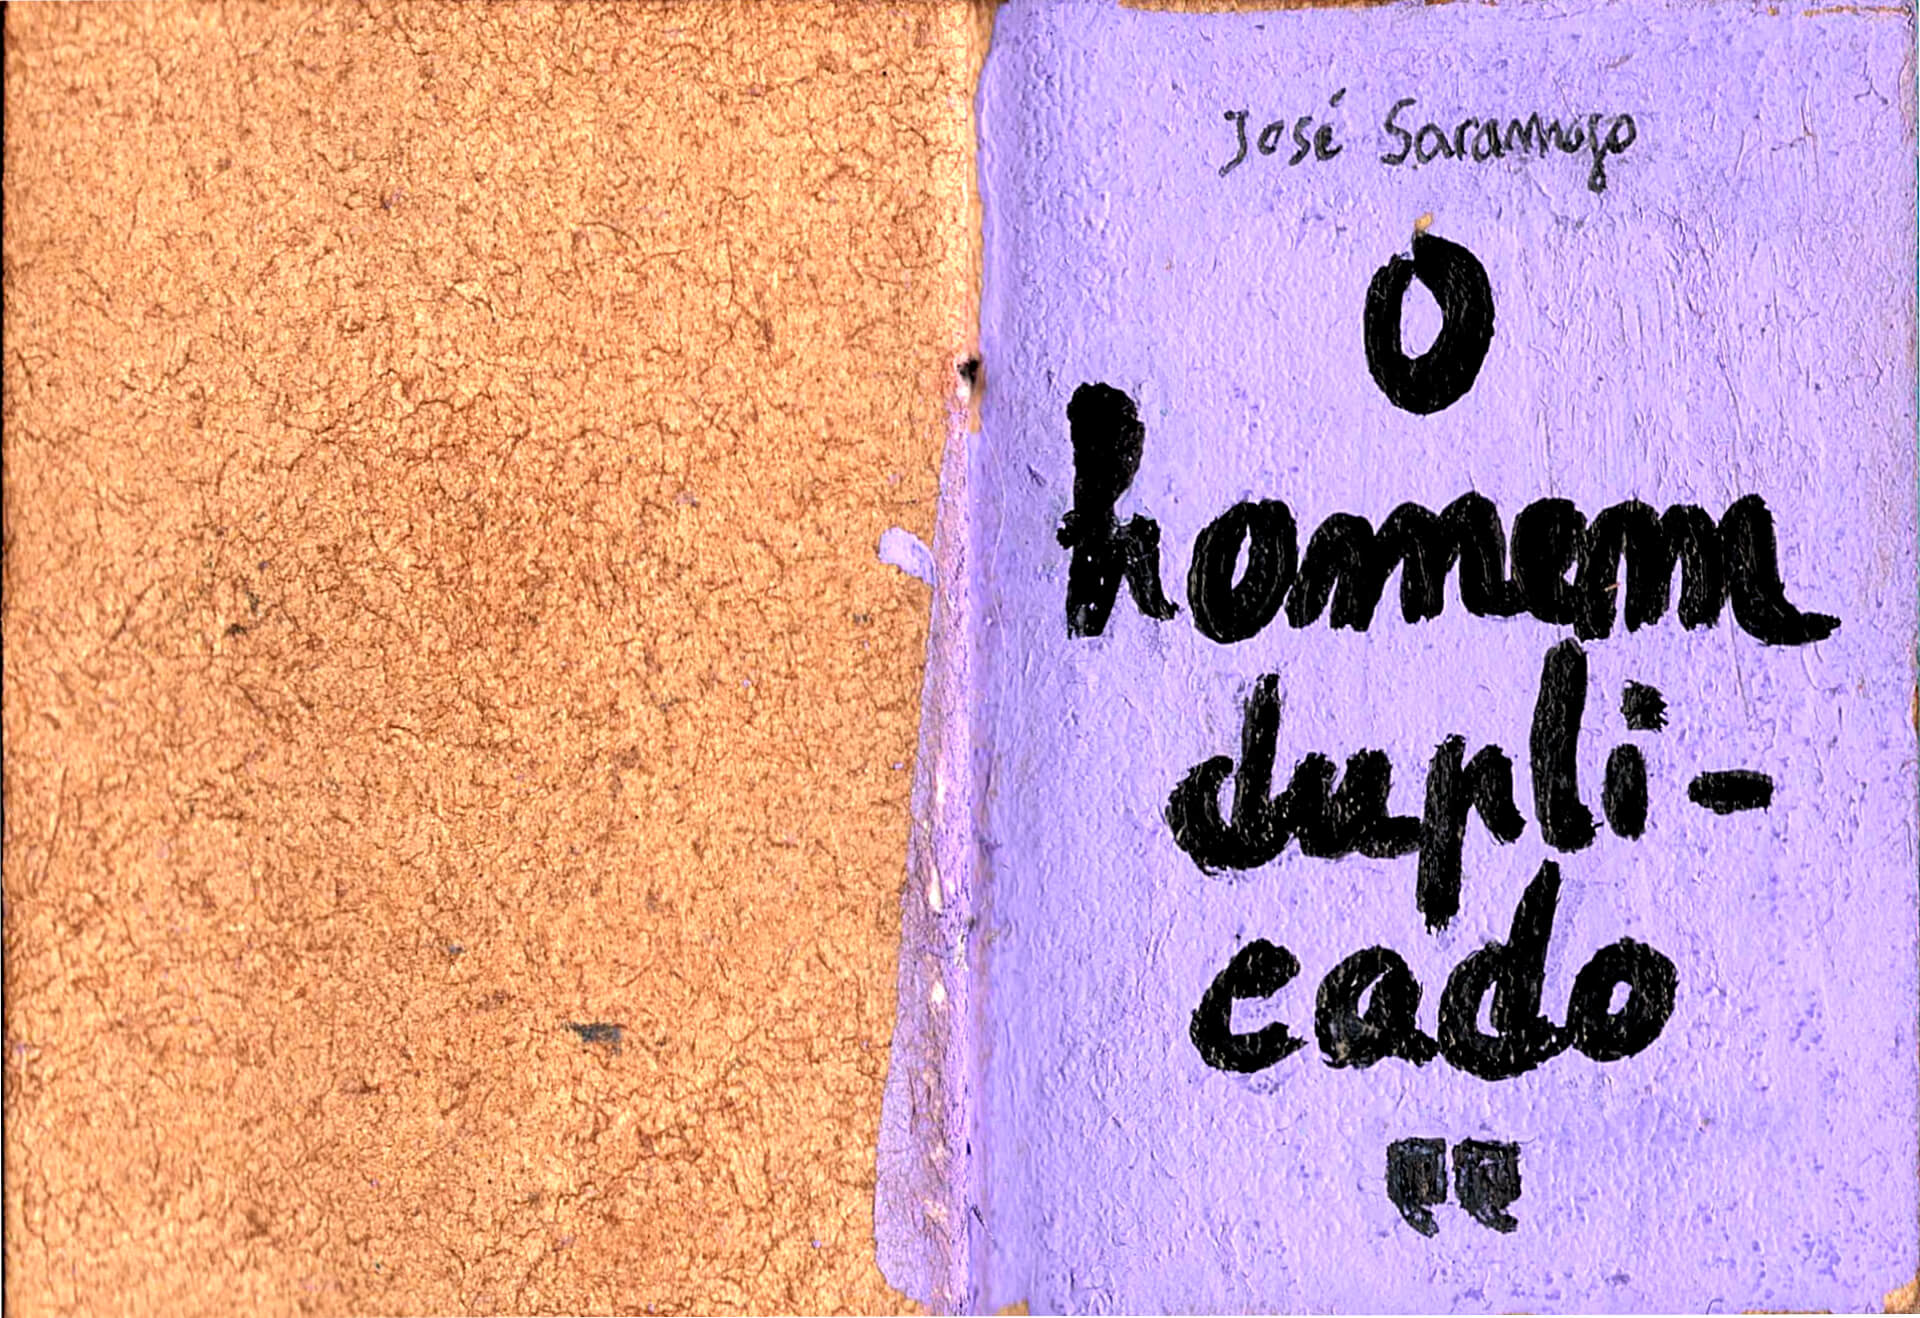 José Saramago
O
homem
dupli-
cado
"